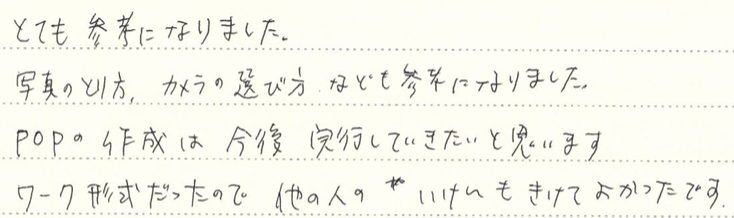 とても参考になりました。
写真のとり方、カメラの選び方なども参考になりました。
POPの作成は今後実行していきたいと思います
ワーク形式だったので他の人の いけんもきけてよかったです。